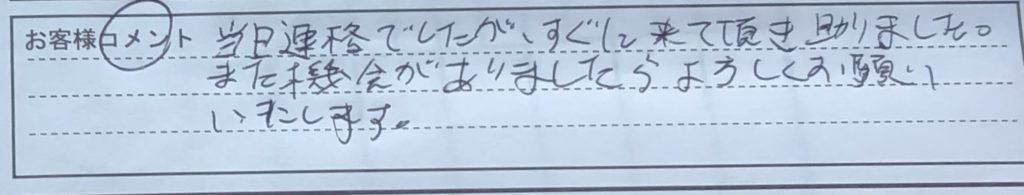 お客様コメント 当日連絡でしたが、すぐに来て頂き助りました。
また機会がありましたらよろしくお願い
いたします。